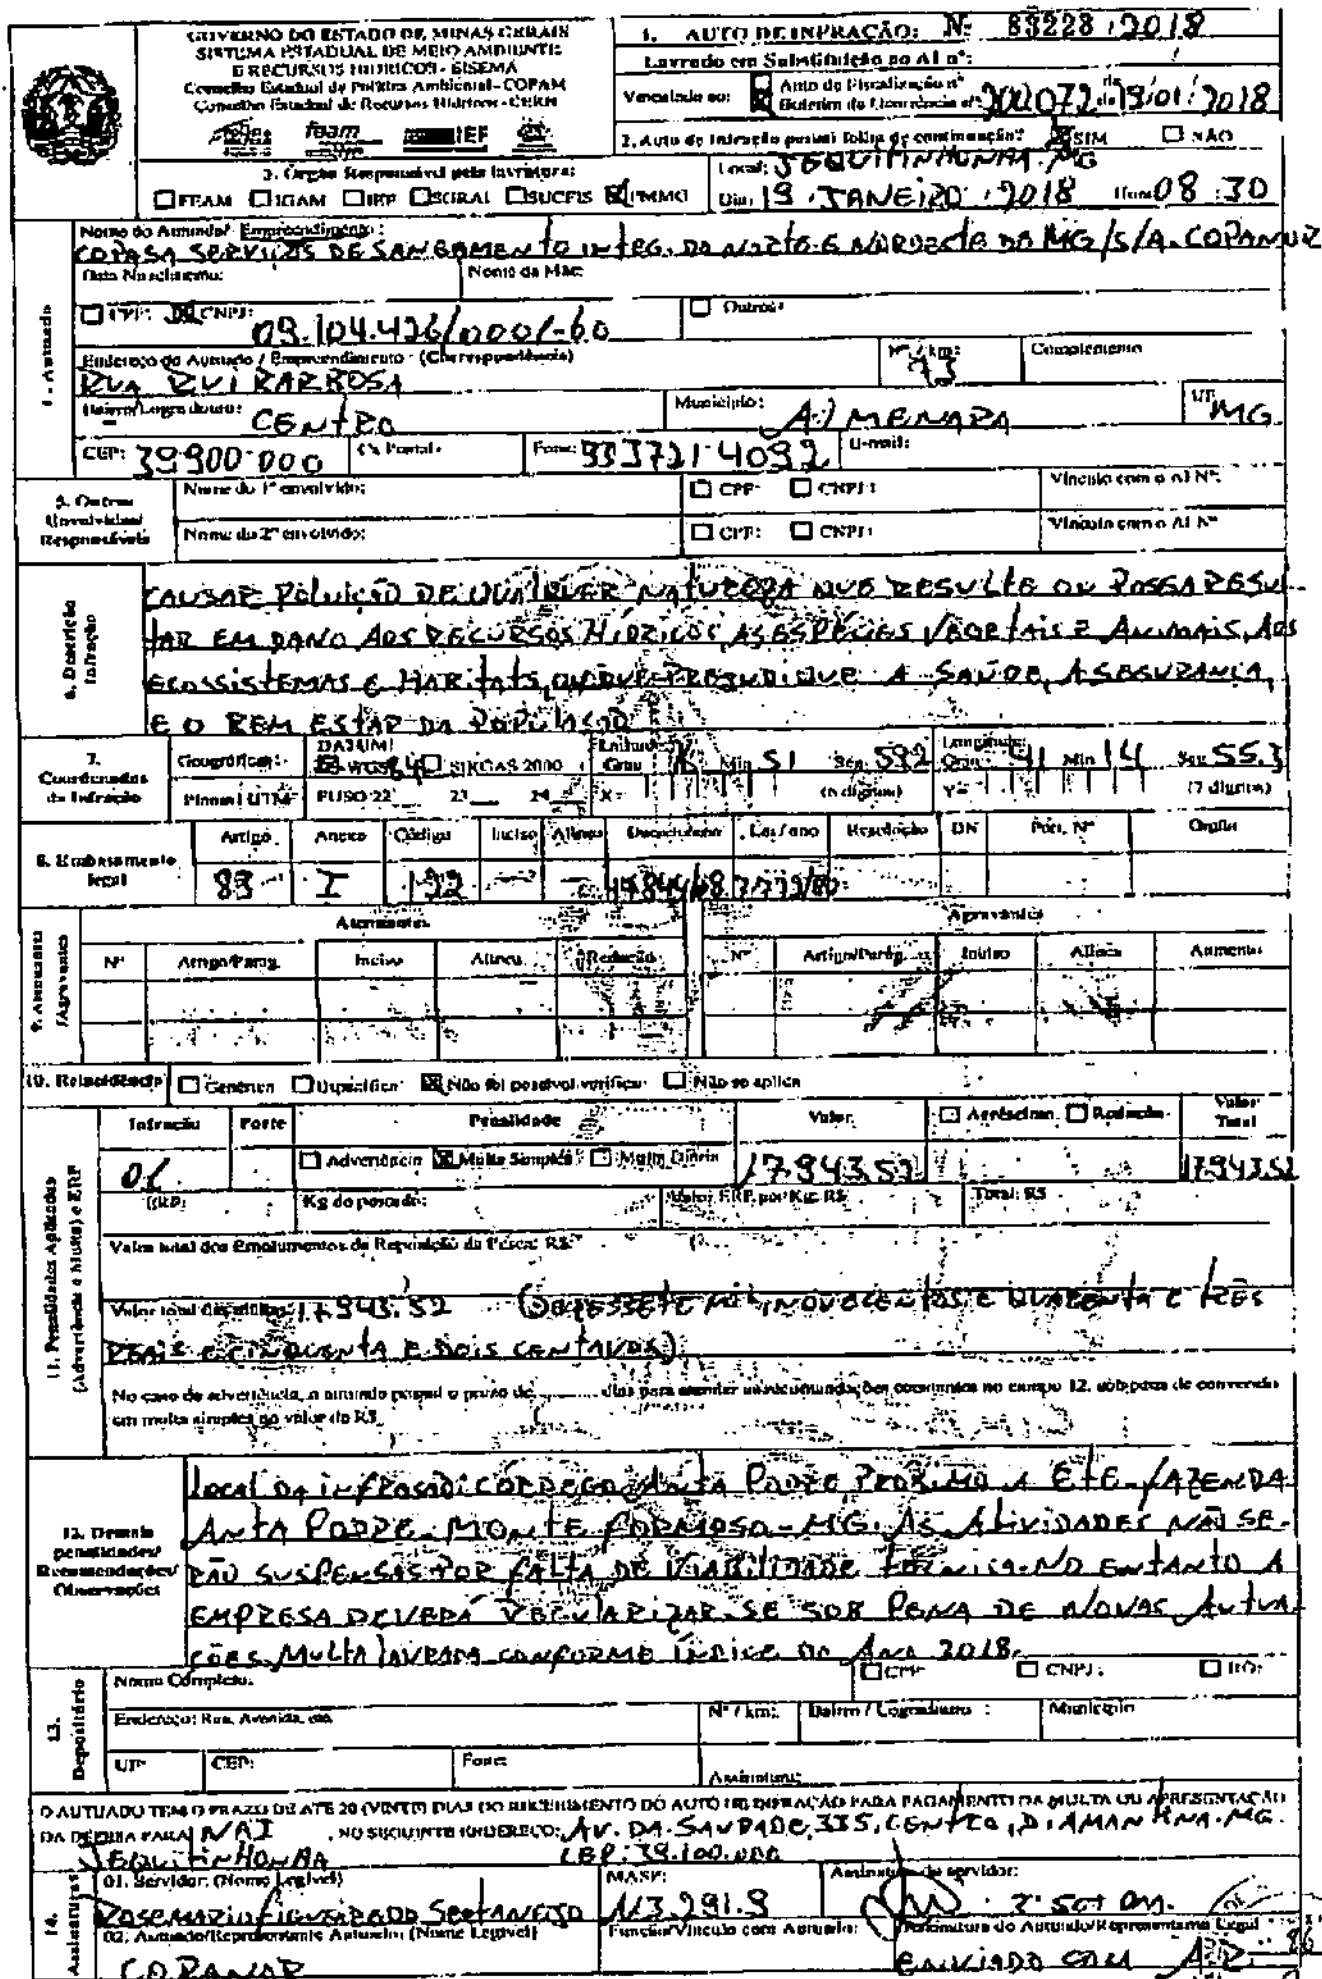 GOVERNO DO ESTADO DE MINAS GERAIS
SISTEMA ESTADUAL DE MEIO AMBIENTE
E RECURSOS HÍDRICOS - SISEMA
Conselho Estadual de Política Ambiental - COPAM
Conselho Estadual de Recursos Hídricos - CERH
feam IEF
1. AUTO DE INFRAÇÃO: Nº 89228 / 2018
Lavrado em Substituição ao AI nº: /
Vinculado ao: Auto de Fiscalização nº de
Boletim de Ocorrência nº: 19/01/2018
2. Auto de Infração possui folha de continuação? SIM NÃO
3. Órgão Responsável pela lavratura:
FEAM IGAM IEF SGRAI SUCFIS PMMG
Local: JEQUITINHONHA-MG
Dia: 19 JANEIRO 2018 Hora: 08:30
4. Autuado
Nome do Autuado/ Empreendimento:
COPASA SERVIÇOS DE SANEAMENTO INTEG. DO NORTE E NORDESTE DE MG/S/A. COPANOR
Data Nascimento: Nome da Mãe:
CPF: CNPJ: 09.104.426/0001-60 Outros:
Endereço do Autuado / Empreendimento - (Correspondência) Nº / km: Complemento
RUA RUI BARBOSA 93
Bairro/Logradouro: CENTRO Município: ALMENARA UF MG
CEP: 39900-000 Cx Postal: Fone: 33 3721-4092 E-mail:
5. Outros Envolvidos/ Responsáveis
Nome do 1º envolvido: CPF: CNPJ: Vínculo com o AI Nº:
Nome do 2º envolvido: CPF: CNPJ: Vínculo com o AI Nº
6. Descrição Infração
CAUSAR POLUIÇÃO DE QUALQUER NATUREZA QUE RESULTE OU POSSA RESUL-
TAR EM DANO AOS RECURSOS HÍDRICOS, AS ESPÉCIES VEGETAIS E ANIMAIS, AOS
ECOSSISTEMAS E HABITATS, OU QUE PREJUDIQUE A SAÚDE, A SEGURANÇA,
E O BEM ESTAR DA POPULAÇÃO
7. Coordenadas da Infração
Geográficas: DATUM: WGS 84 SIRGAS 2000 Latitude: Grau 16 Min 51 Seg 592 Longitude: Grau 41 Min 14 Seg 55.3
Planas: UTM FUSO 22 23 24 X= (6 dígitos) Y= (7 dígitos)
8. Embasamento legal
Artigo Anexo Código Inciso Alínea Decreto/ano Lei / ano Resolução DN Port. Nº Órgão
83 I 122 - - 44844/08 7772/80
9. Atenuantes /Agravantes
Atenuantes Agravantes
Nº Artigo/Parág. Inciso Alínea Redução Nº Artigo/Parág. Inciso Alínea Aumento
10. Reincidência Genérica Específica Não foi possível verificar Não se aplica
11. Penalidades Aplicadas (Advertência e Multa) e ERP
Infração Porte Penalidade Valor Acréscimo Redução Valor Total
01 Advertência Multa Simples Multa Diária 17.943,52 17.943,52
ERP: Kg de pescado: Valor ERP por Kg: R$ Total: R$
Valor total dos Emolumentos de Reposição da Pesca: R$
Valor total das multas: 17.943,52 (DEZESSETE MIL, NOVECENTOS E QUARENTA E TRÊS
REAIS E CINQUENTA E DOIS CENTAVOS)
No caso de advertência, o autuado possui o prazo de dias para atender as recomendações constantes no campo 12, sob pena de conversão
em multa simples no valor de R$
12. Demais penalidades/ Recomendações/ Observações
LOCAL DA INFRAÇÃO: CÓRREGO ANTA PODRE PRÓXIMO A ETE - FAZENDA
ANTA PODRE - MONTE FORMOSO - MG. AS ATIVIDADES NÃO SE-
RÃO SUSPENSAS POR FALTA DE VIABILIDADE TÉCNICA. NO ENTANTO A
EMPRESA DEVERÁ REGULARIZAR-SE SOB PENA DE NOVAS AUTUA-
ÇÕES. MULTA LAVRADA CONFORME ÍNDICE DO ANO 2018.
13. Depositário
Nome Completo: CPF CNPJ: RG:
Endereço: Rua, Avenida, etc. Nº / km: Bairro / Logradouro : Município
UF CEP: Fone: Assinatura:
O AUTUADO TEM O PRAZO DE ATÉ 20 (VINTE) DIAS DO RECEBIMENTO DO AUTO DE INFRAÇÃO PARA PAGAMENTO DA MULTA OU APRESENTAÇÃO
DA DEFESA PARA NAI , NO SEGUINTE ENDEREÇO: AV. DA SAUDADE, 335, CENTRO, DIAMANTINA-MG.
JEQUITINHONHA CEP: 39.100.000
14. Assinaturas
01. Servidor: (Nome Legível) MASP: Assinatura do servidor:
ROSEMARIO FIGUEIREDO SERTANEJO 113.291.9 2º SGT PM.
02. Autuado/Representante Autuado: (Nome Legível) Função/Vínculo com Autuado: Assinatura do Autuado/Representante Legal
COPANOR ENVIADO COM A.R. 86